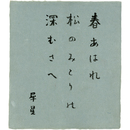 春あはれ
松のみどりの
深むさへ